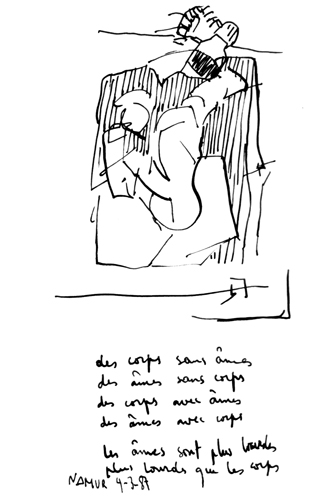 des corps sans âmes
des âmes sans corps
des corps avec âmes
des âmes avec corps
les âmes sont plus lourdes
plus lourdes que les corps
NAMUR 4-3-87